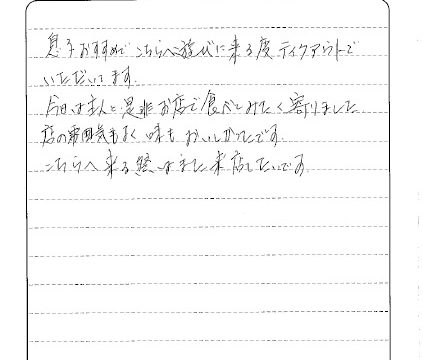 息子おすすめでこちらへ遊びに来る度テイクアウトで
いただいてます。
今日は主人と是非お店で食べてみたく寄りました
店の雰囲気もよく味もおいしかったです。
こちらへ来る際はまた来店したいです